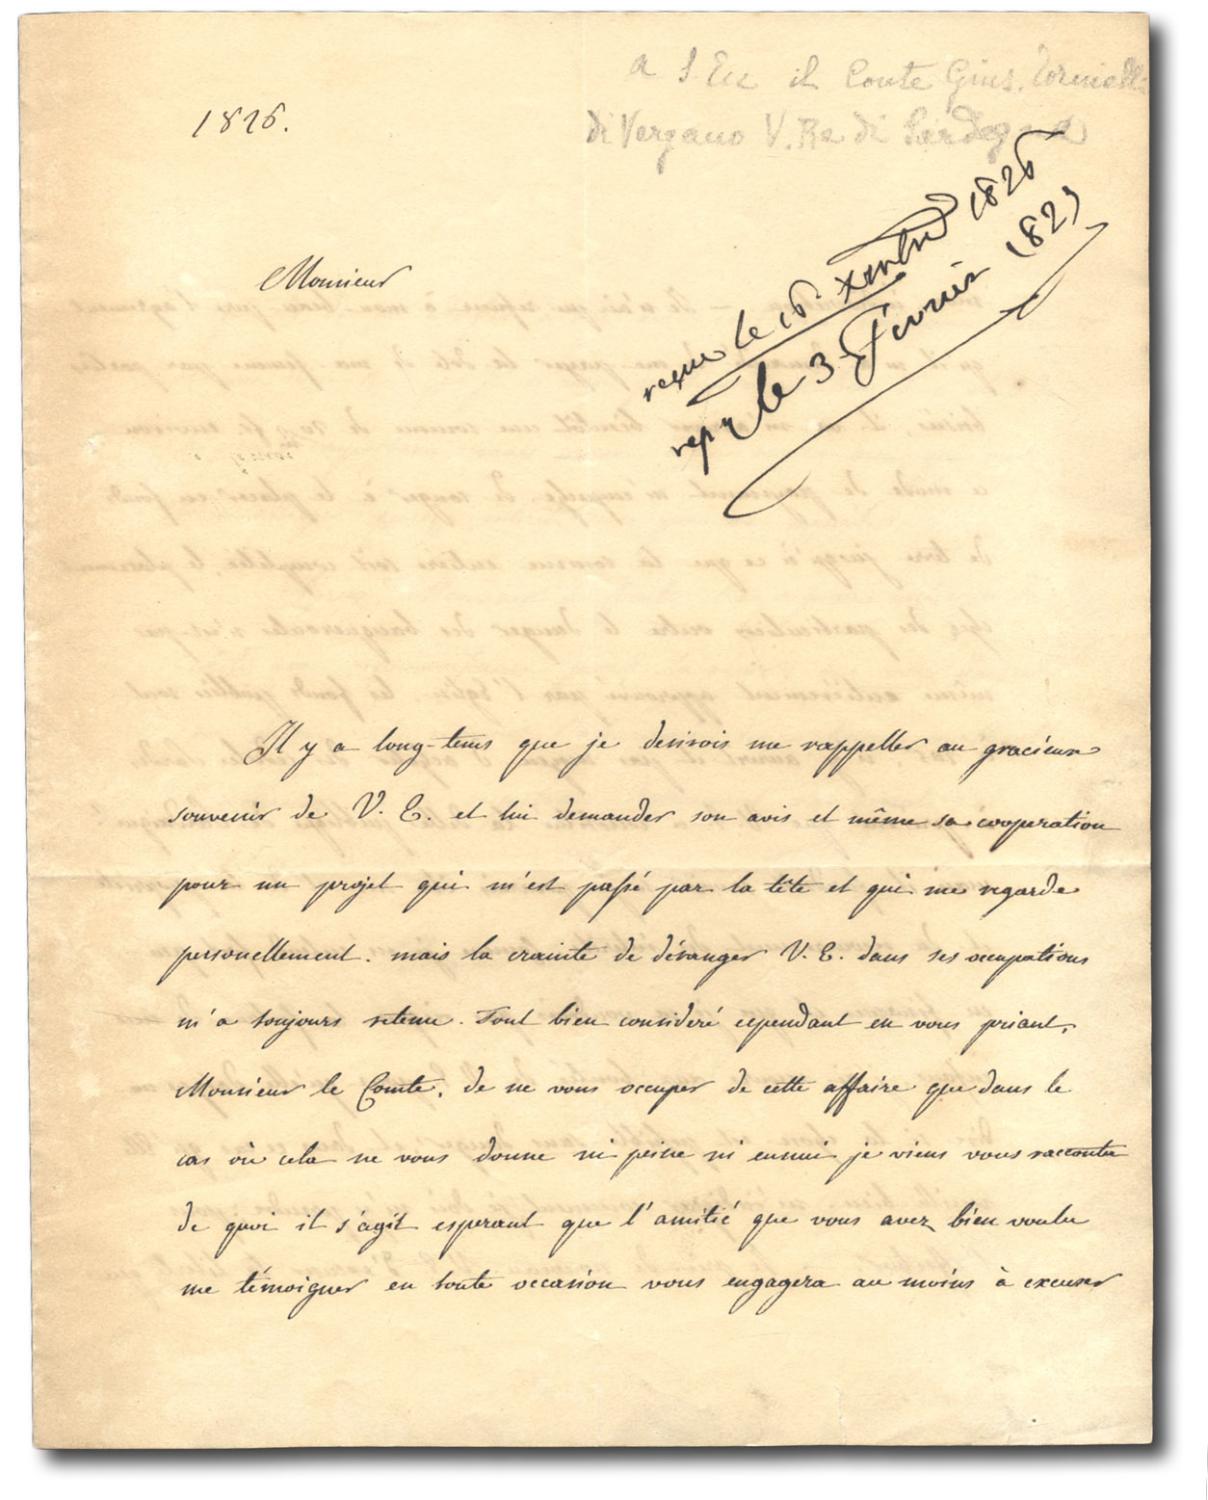 a S. Ecc il Conte Gius. Tornielli
di Vergano V. Re di Sardegna
1826.
reçue le 16 Xmbre 1826
rep. le 3 Fevrier 1827
Monsieur
Il y a long-tems que je desirois me rappeller au gracieux
souvenir de V. E. et lui demander son avis et même sa cooperation
pour un projet qui m'est passé par la tête et qui me regarde
personellement. mais la crainte de déranger V. E. dans ses occupations
m'a toujours retenu. Tout bien consideré cependant en vous priant,
Monsieur le Comte, de ne vous occuper de cette affaire que dans le
cas où cela ne vous donne ni peine ni ennui je viens vous raconter
de quoi il s'agit esperant que l'amitié que vous avez bien voulu
me témoigner en toute occasion vous engagera au moins à excuser